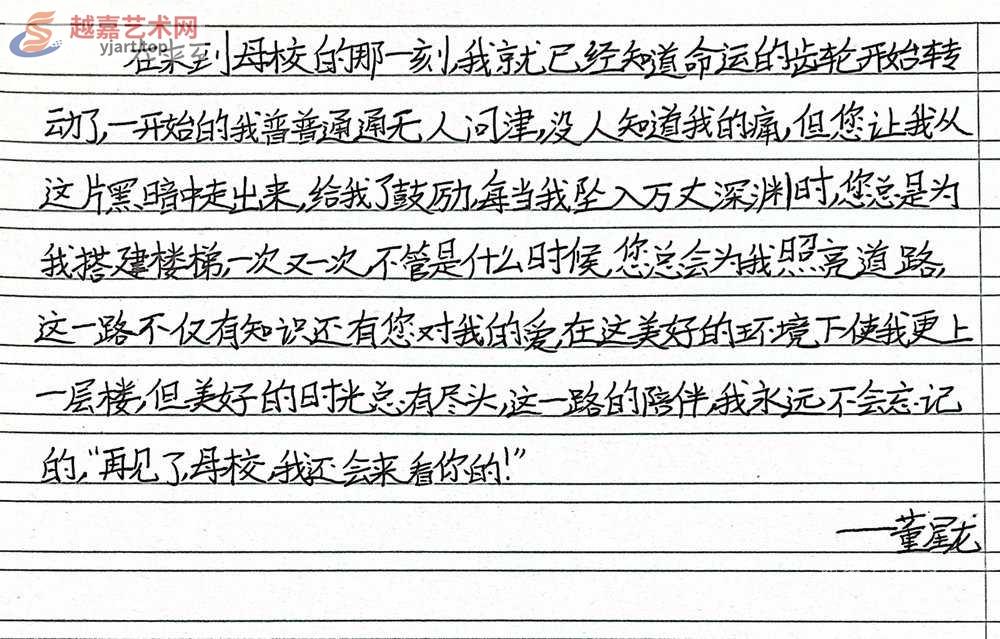 越嘉艺术网
yjart.top
在来到母校的那一刻,我就已经知道命运的齿轮开始转
动了,一开始的我普普通通无人问津,没人知道我的痛,但您让我从
这片黑暗中走出来,给我了鼓励,每当我坠入万丈深渊时,您总是为
我搭建楼梯,一次又一次,不管是什么时候,您总会为我照亮道路,
这一路不仅有知识还有您对我的爱,在这美好的环境下使我更上
一层楼,但美好的时光总有尽头,这一路的陪伴,我永远不会忘记
的,“再见了,母校,我还会来看你的!”
——董星龙